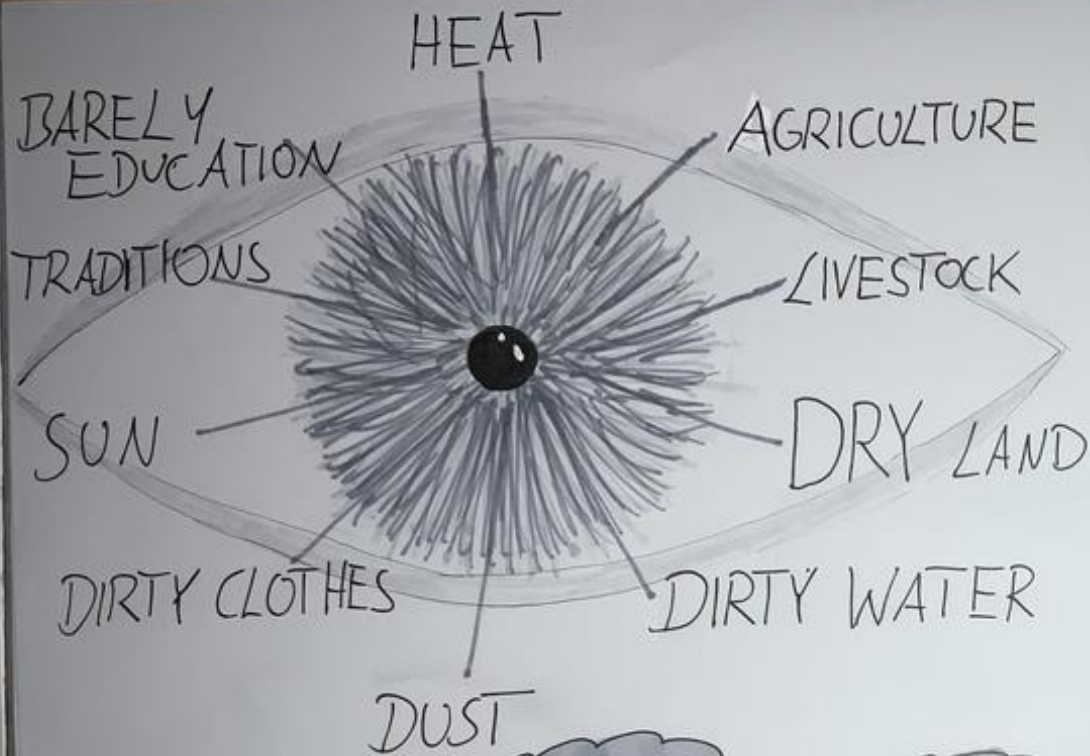 HEAT
BARELY
EDUCATION
AGRICULTURE
TRADITIONS
LIVESTOCK
SUN
DRY LAND
DIRTY CLOTHES
DIRTY WATER
DUST